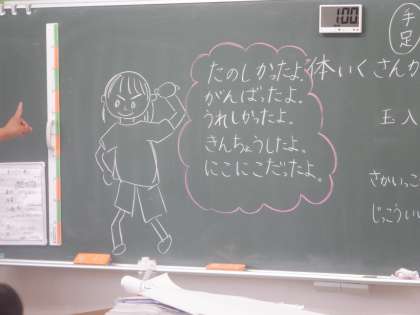 100
手
足
たのしかったよ。
がんばったよ。
うれしかったよ。
きんちょうしたよ。
にこにこだったよ。
体いくさんか
玉入
さかいっこ
じっこうい